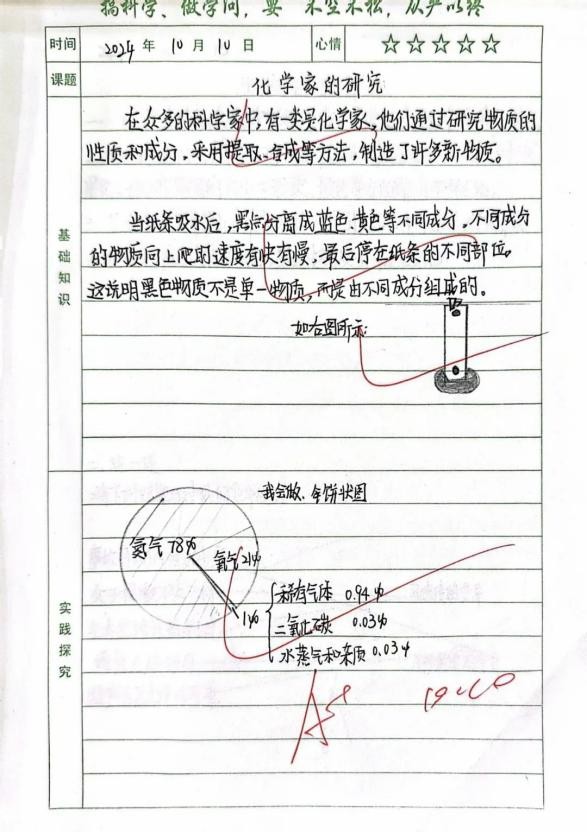 搞科学、做学问，要
从严以终
时间 2024 年 10 月 10 日 心情 ☆☆☆☆☆
课题 化学家的研究
在众多的科学家中，有一类是化学家，他们通过研究物质的
性质和成分，采用提取、合成等方法，制造了许多新物质。
当纸条吸水后，黑点分离成蓝色、黄色等不同成分，不同成分
的物质向上爬的速度有快有慢，最后停在纸条的不同部位。
这说明黑色物质不是单一物质，而是由不同成分组成的。
如右图所示：
基础知识
我会做、
饼状图
氮气 78%
氧气 21%
1%
稀有气体 0.94%
二氧化碳 0.03%
水蒸气和杂质 0.03%
实践探究
10.10